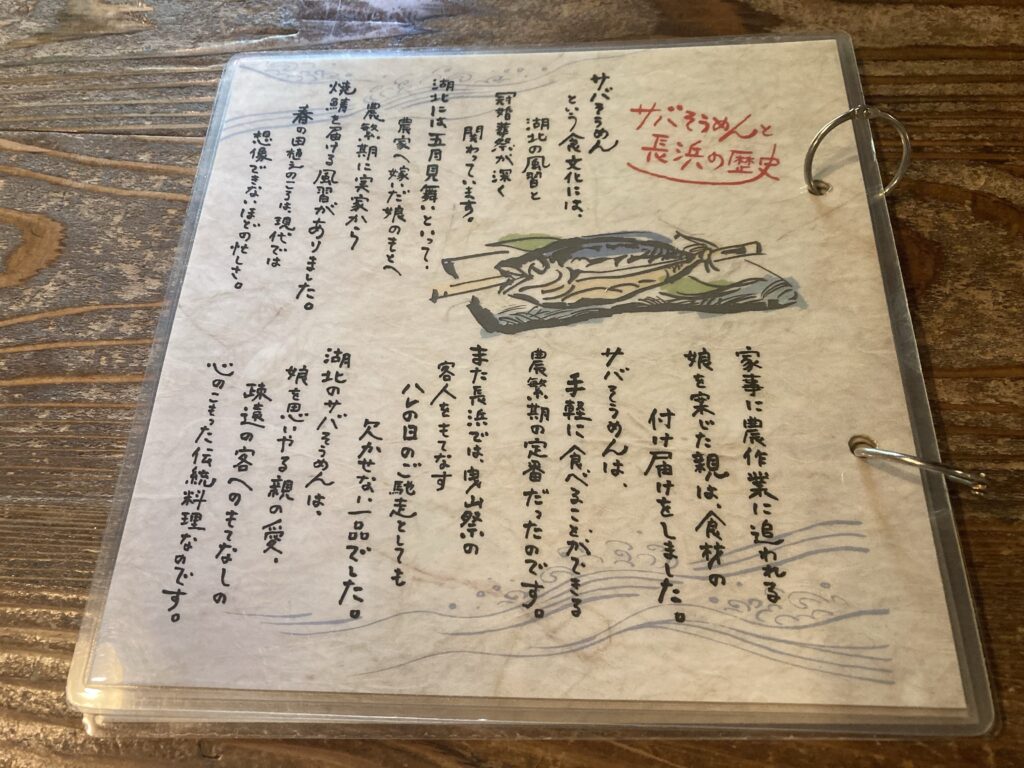 サバそうめんと
長浜の歴史
サバそうめん
という食文化は、
湖北の風習と
冠婚葬祭が深く
関わっています。
湖北には五月見舞いといって、
農家へ嫁いだ娘のもとへ
農繁期に実家から
焼鯖を届ける風習がありました。
春の田植えのころは、現代では
想像できないほどの忙しさ。
家事に農作業に追われる
娘を案じた親は、食材の
付け届けをしました。
サバそうめんは、
手軽に食べることができる
農繁期の定番だったのです。
また長浜では、曳山祭の
客人をもてなす
ハレの日のご馳走としても
欠かせない一品でした。
湖北のサバそうめんは、
娘を思いやる親の愛、
疎遠の客へのもてなしの
心のこもった伝統料理なのです。